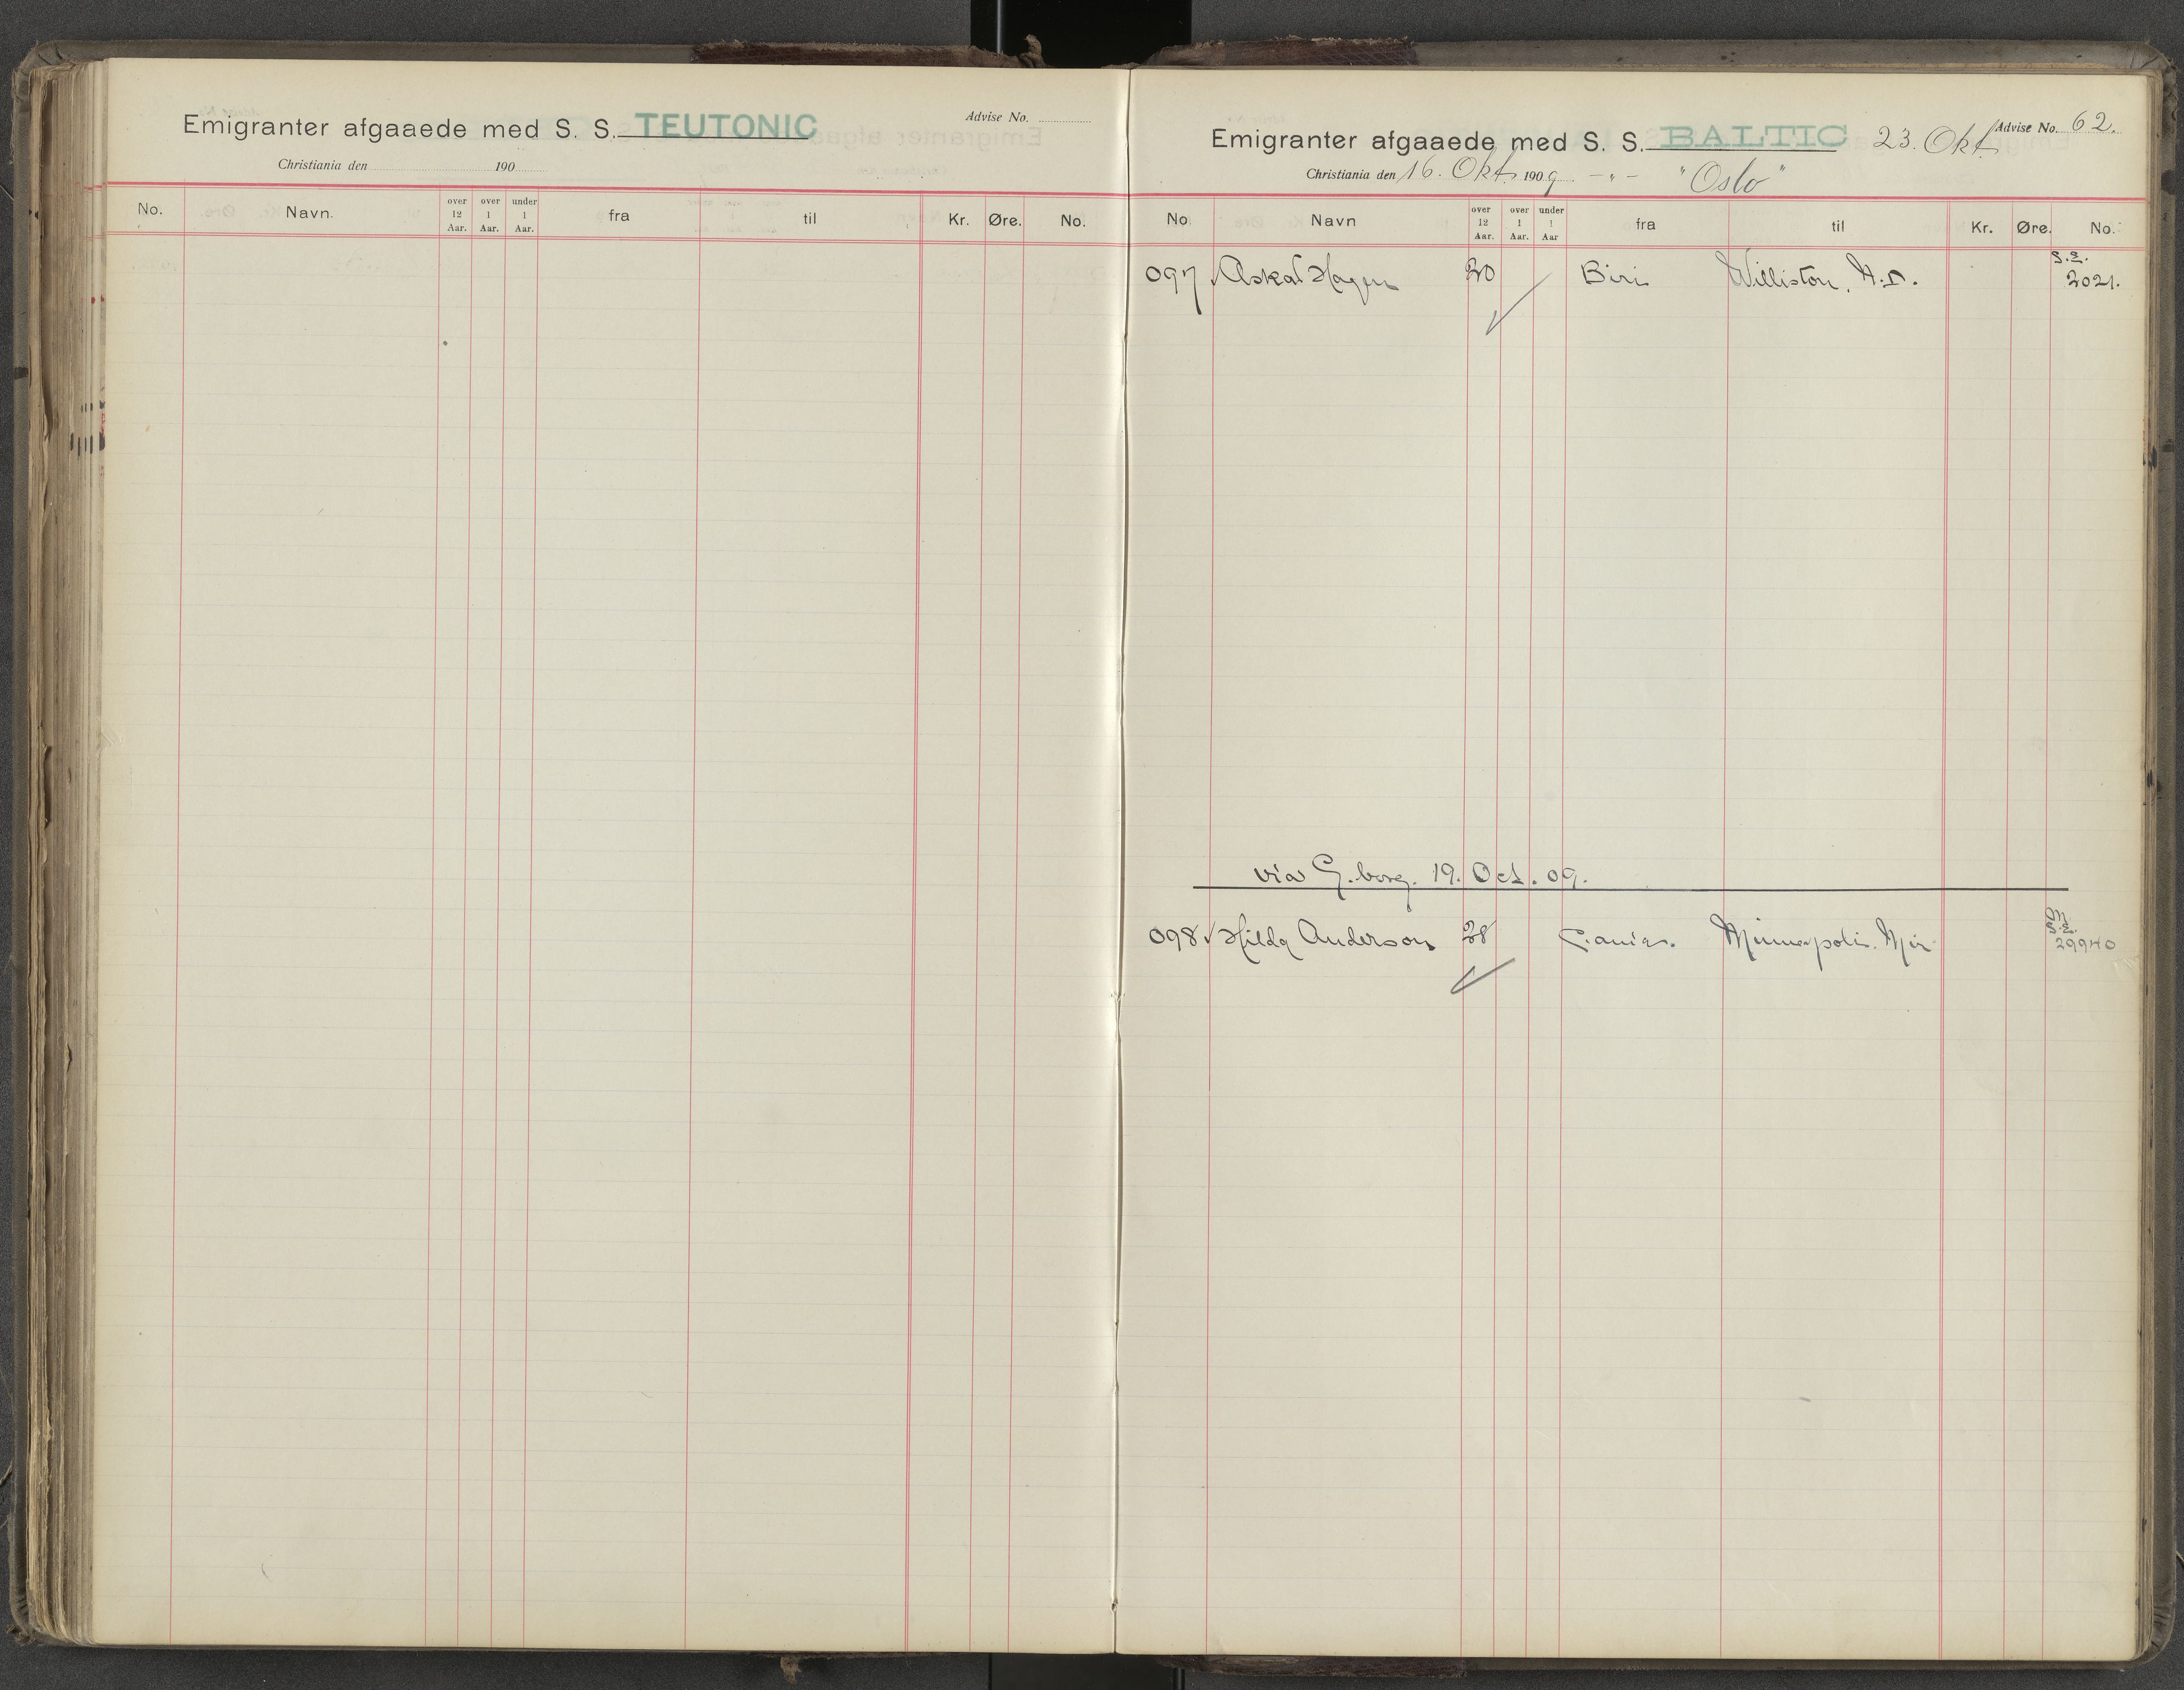 Emigranter afgaaede med S. S. TEUTONIC
Advise No.
Christiania den 190
No. Navn. over 12 Aar. over 1 Aar. under 1 Aar. fra til Kr. Øre. No.
Emigranter afgaaede med S. S. BALTIC 23. Okt.
Advise No. 62.
Christiania den 16. Okt. 1909 - " - "Oslo"
No. Navn over 12 Aar. over 1 Aar. under 1 Aar fra til Kr. Øre. No.
097 Hagen 20 Biri Williston, N.D. S.E. 2021.
via G.borg. 19. Oct. 09.
098 Hilda Anderson 28 Minneapolis. Min S.E. 29940